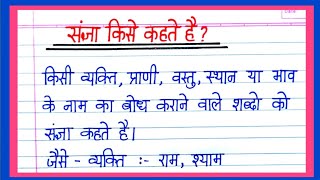 संज्ञा किसे कहते है ?
किसी व्यक्ति, प्राणी, वस्तु, स्थान या भाव
के नाम का बोध कराने वाले शब्दो को
संज्ञा कहते है।
जैसे - व्यक्ति :- राम, श्याम